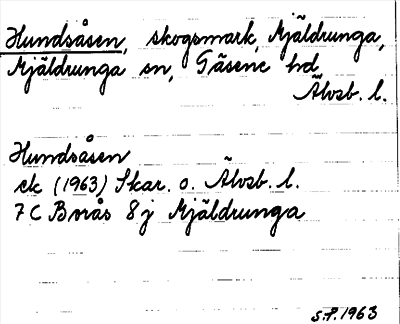 Hundsåsen, skogsmark, Mjäldrunga,
Mjäldrunga sn, Gäsene hd,
Älvsb. l.
Hundsåsen
ek (1963) Skar. o. Älvsb. l.
7C Borås 8j Mjäldrunga
S.F. 1963